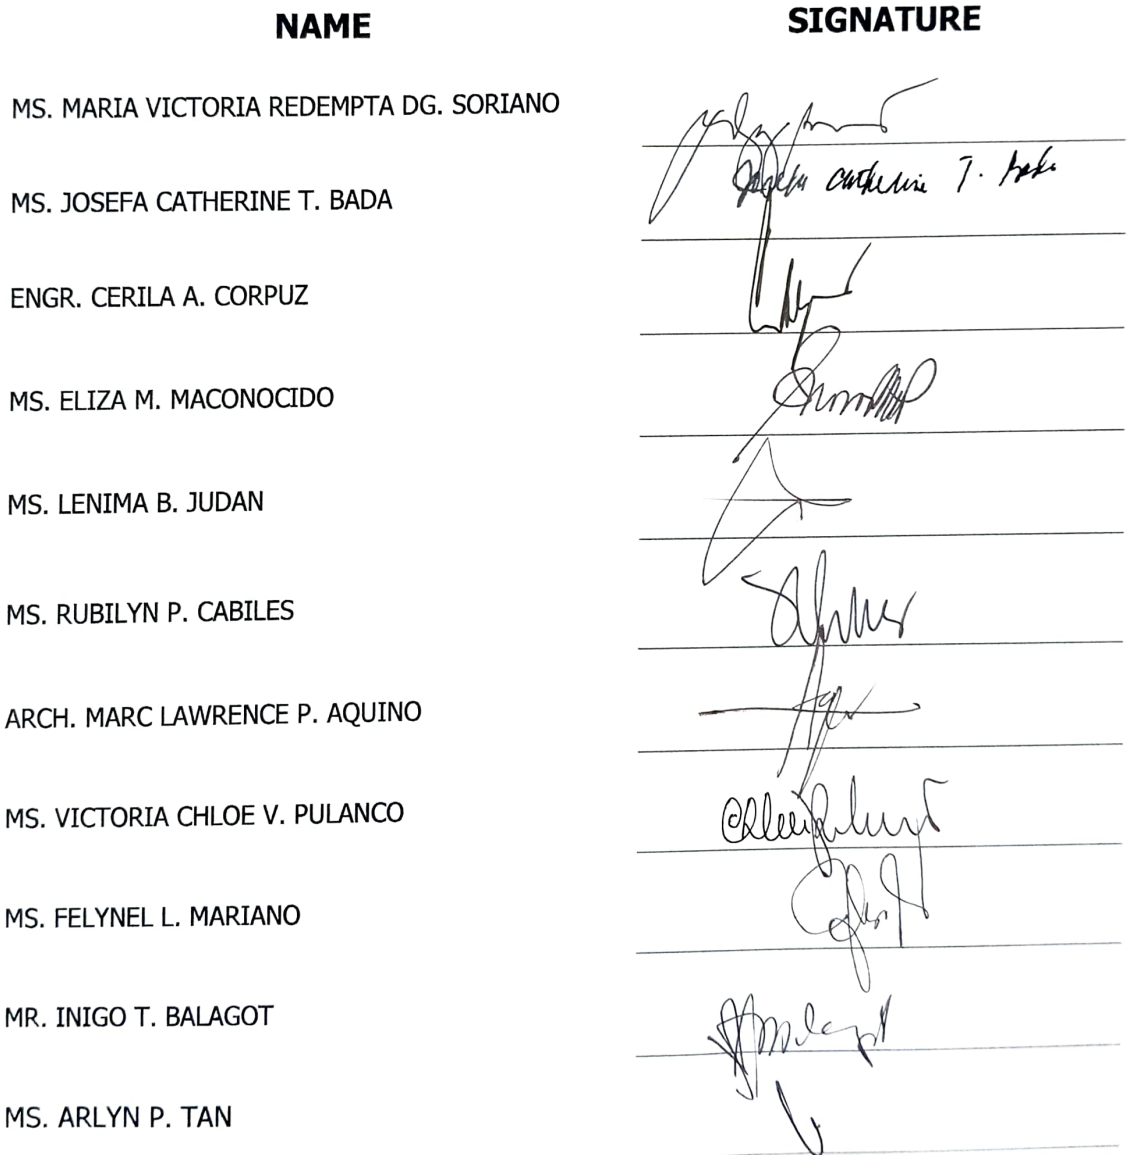 NAME SIGNATURE
MS. MARIA VICTORIA REDEMPTA DG. SORIANO
MS. JOSEFA CATHERINE T. BADA Josefa Catherine T. Bada
ENGR. CERILA A. CORPUZ
MS. ELIZA M. MACONOCIDO
MS. LENIMA B. JUDAN
MS. RUBILYN P. CABILES
ARCH. MARC LAWRENCE P. AQUINO
MS. VICTORIA CHLOE V. PULANCO
MS. FELYNEL L. MARIANO
MR. INIGO T. BALAGOT
MS. ARLYN P. TAN